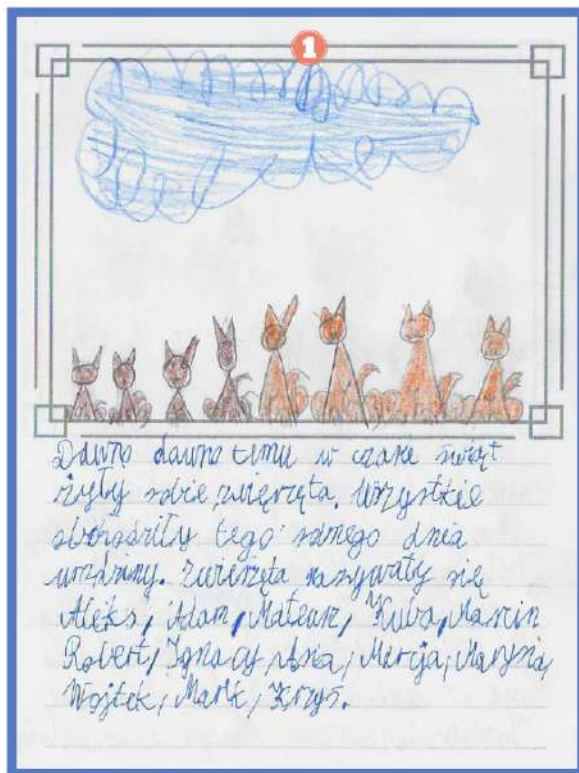 1
Dawno dawno temu w czasie świąt
żyły sobie zwięrzęta. Wszystkie
obchodziły tego samego dnia
urodziny. Zwierzęta nazywały się
Aleks, Adam, Mateusz, Kuba, Marcin
Robert, Ignacy, Ania, Mercja, Marysia,
Wojtek, Marek, Krzyś.